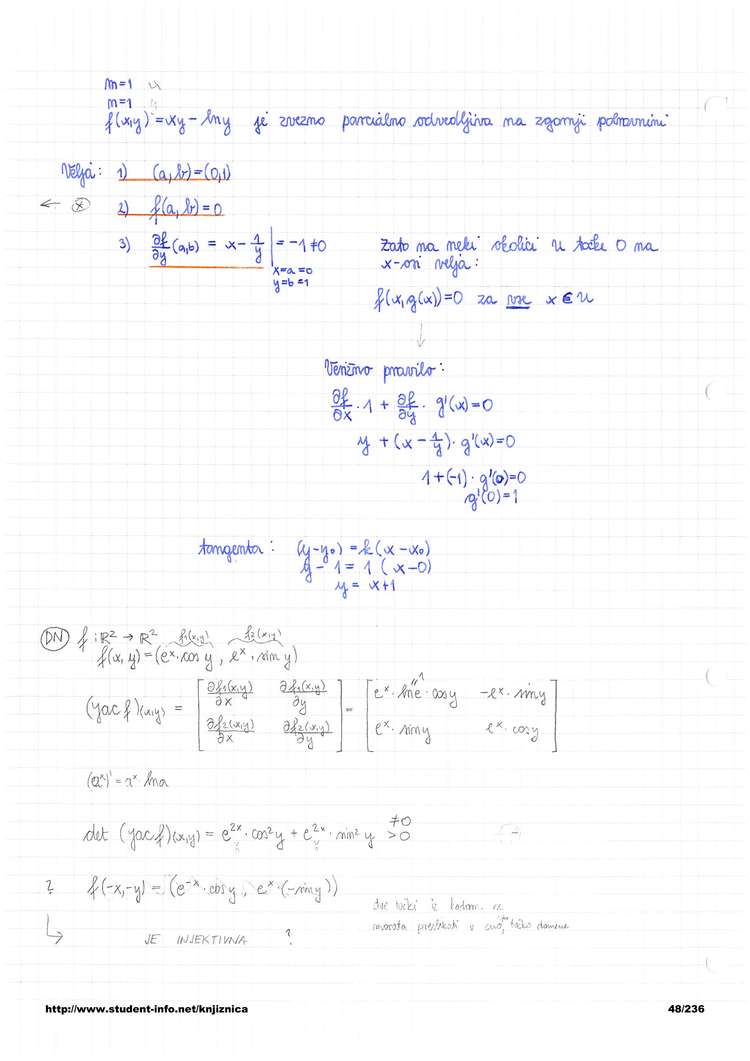 m=1
m=1
f(x,y) = xy - ln y je zvezno parcialno odvedljiva na zgornji polravnini
Velja: 1) (a,b)=(0,1)
← ⊛ 2) f(a,b)=0
3) ∂f/∂y (a,b) = x - 1/y | x=a=0 y=b=1 = -1 ≠0
Zato na neki okolici U točke 0 na
x-osi velja:
f(x,g(x))=0 za vse x ∈ U
↓
Verižno pravilo:
∂f/∂x · 1 + ∂f/∂y · g'(x)=0
y + (x - 1/y) · g'(x)=0
1+(-1) · g'(0)=0
g'(0)=1
tangenta: (y-y₀) = k(x-x₀)
y - 1 = 1 (x-0)
y = x+1
DN f: ℝ² → ℝ² f₁(x,y) f₂(x,y)
f(x,y) = (eˣ · cos y, eˣ · sin y)
(Jac f)(x,y) = [ ∂f₁(x,y)/∂x ∂f₁(x,y)/∂y ; ∂f₂(x,y)/∂x ∂f₂(x,y)/∂y ] = [ eˣ · ln e · cos y -eˣ · sin y ; eˣ · sin y eˣ · cos y ]
"1
(aˣ)' = aˣ ln a
det (Jac f)(x,y) = e²ˣ · cos² y + e²ˣ · sin² y >0 ≠0
? f(-x,-y) = (e⁻ˣ · cos y, eˣ · (-sin y))
↳ JE INJEKTIVNA ?
dve točki iz kodom. se
morata preslikati v eno točko domene
http://www.student-info.net/knjiznica
48/236